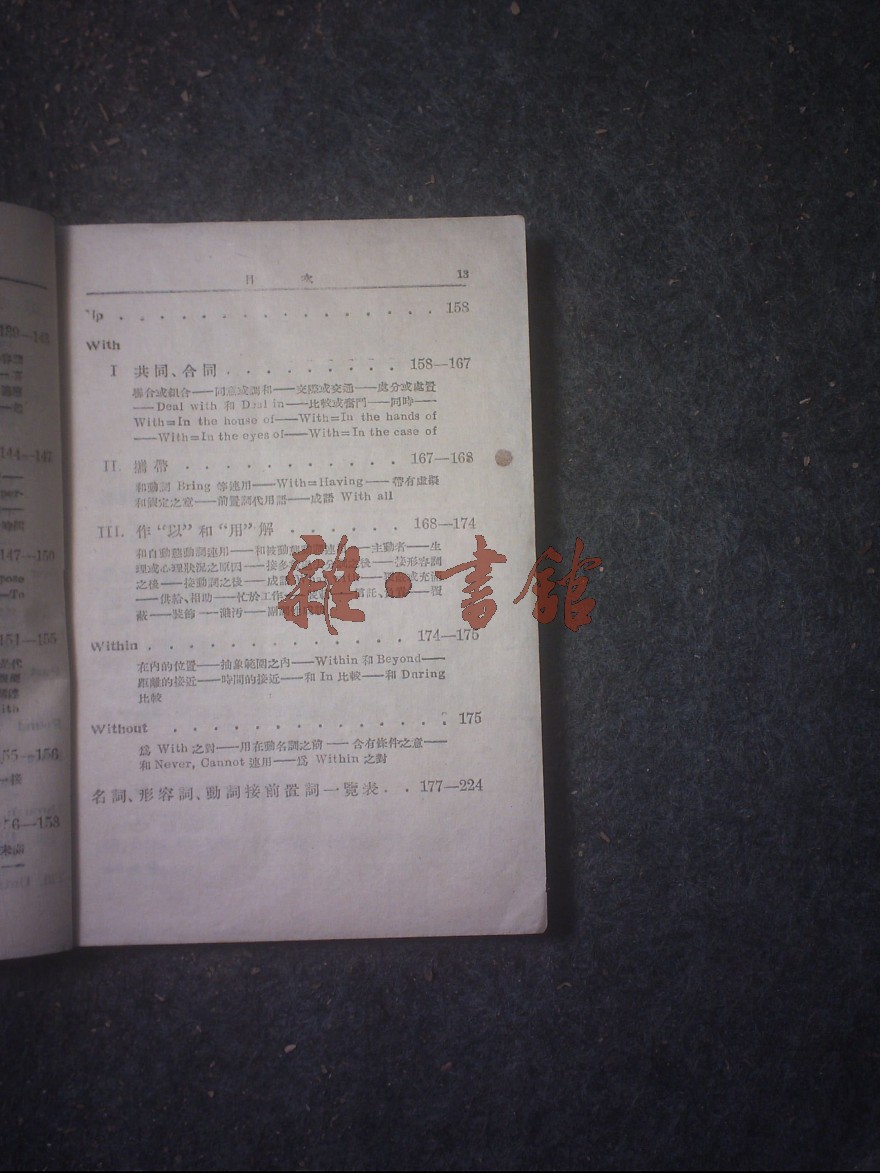 目 次 13
Up . . . . . . . . . . . . . . . . 158
With
I 共同、合同 . . . . . . . . . 158—167
聯合或組合——同意或調和——交際或交通——處分或處置
——Deal with 和 Deal in——比較或奮鬥——同時——
With=In the house of——With=In the hands of
——With=In the eyes of——With=In the case of
II. 攜帶 . . . . . . . . . . . 167—168
和動詞 Bring 等連用——With=Having——帶有虛擬
和假定之意——前置詞代用語——成語 With all
III. 作“以”和“用”解 . . . . . . 168—174
和自動態動詞連用——和被動態動詞連——主動者——生
理或心理狀況之原因——接多 後——接形容詞
之後——接動詞之後——成語 或充滿
——供給、相助——忙於工作 信託、 ——覆
蔽——裝飾——濺污——
雜·書館
Within . . . . . . . . . . . . . 174—175
在內的位置——抽象範圍之內——Within 和 Beyond——
距離的接近——時間的接近——和 In 比較——和 During
比較
Without . . . . . . . . . . . . . 175
爲 With 之對——用在動名詞之前——含有條件之意——
和 Never, Cannot 連用——爲 Within 之對
名詞、形容詞、動詞接前置詞一覽表 . . 177—224
139—143
144—147
per-
147—150
pose
—To
151—155
ith
155—156
156—158